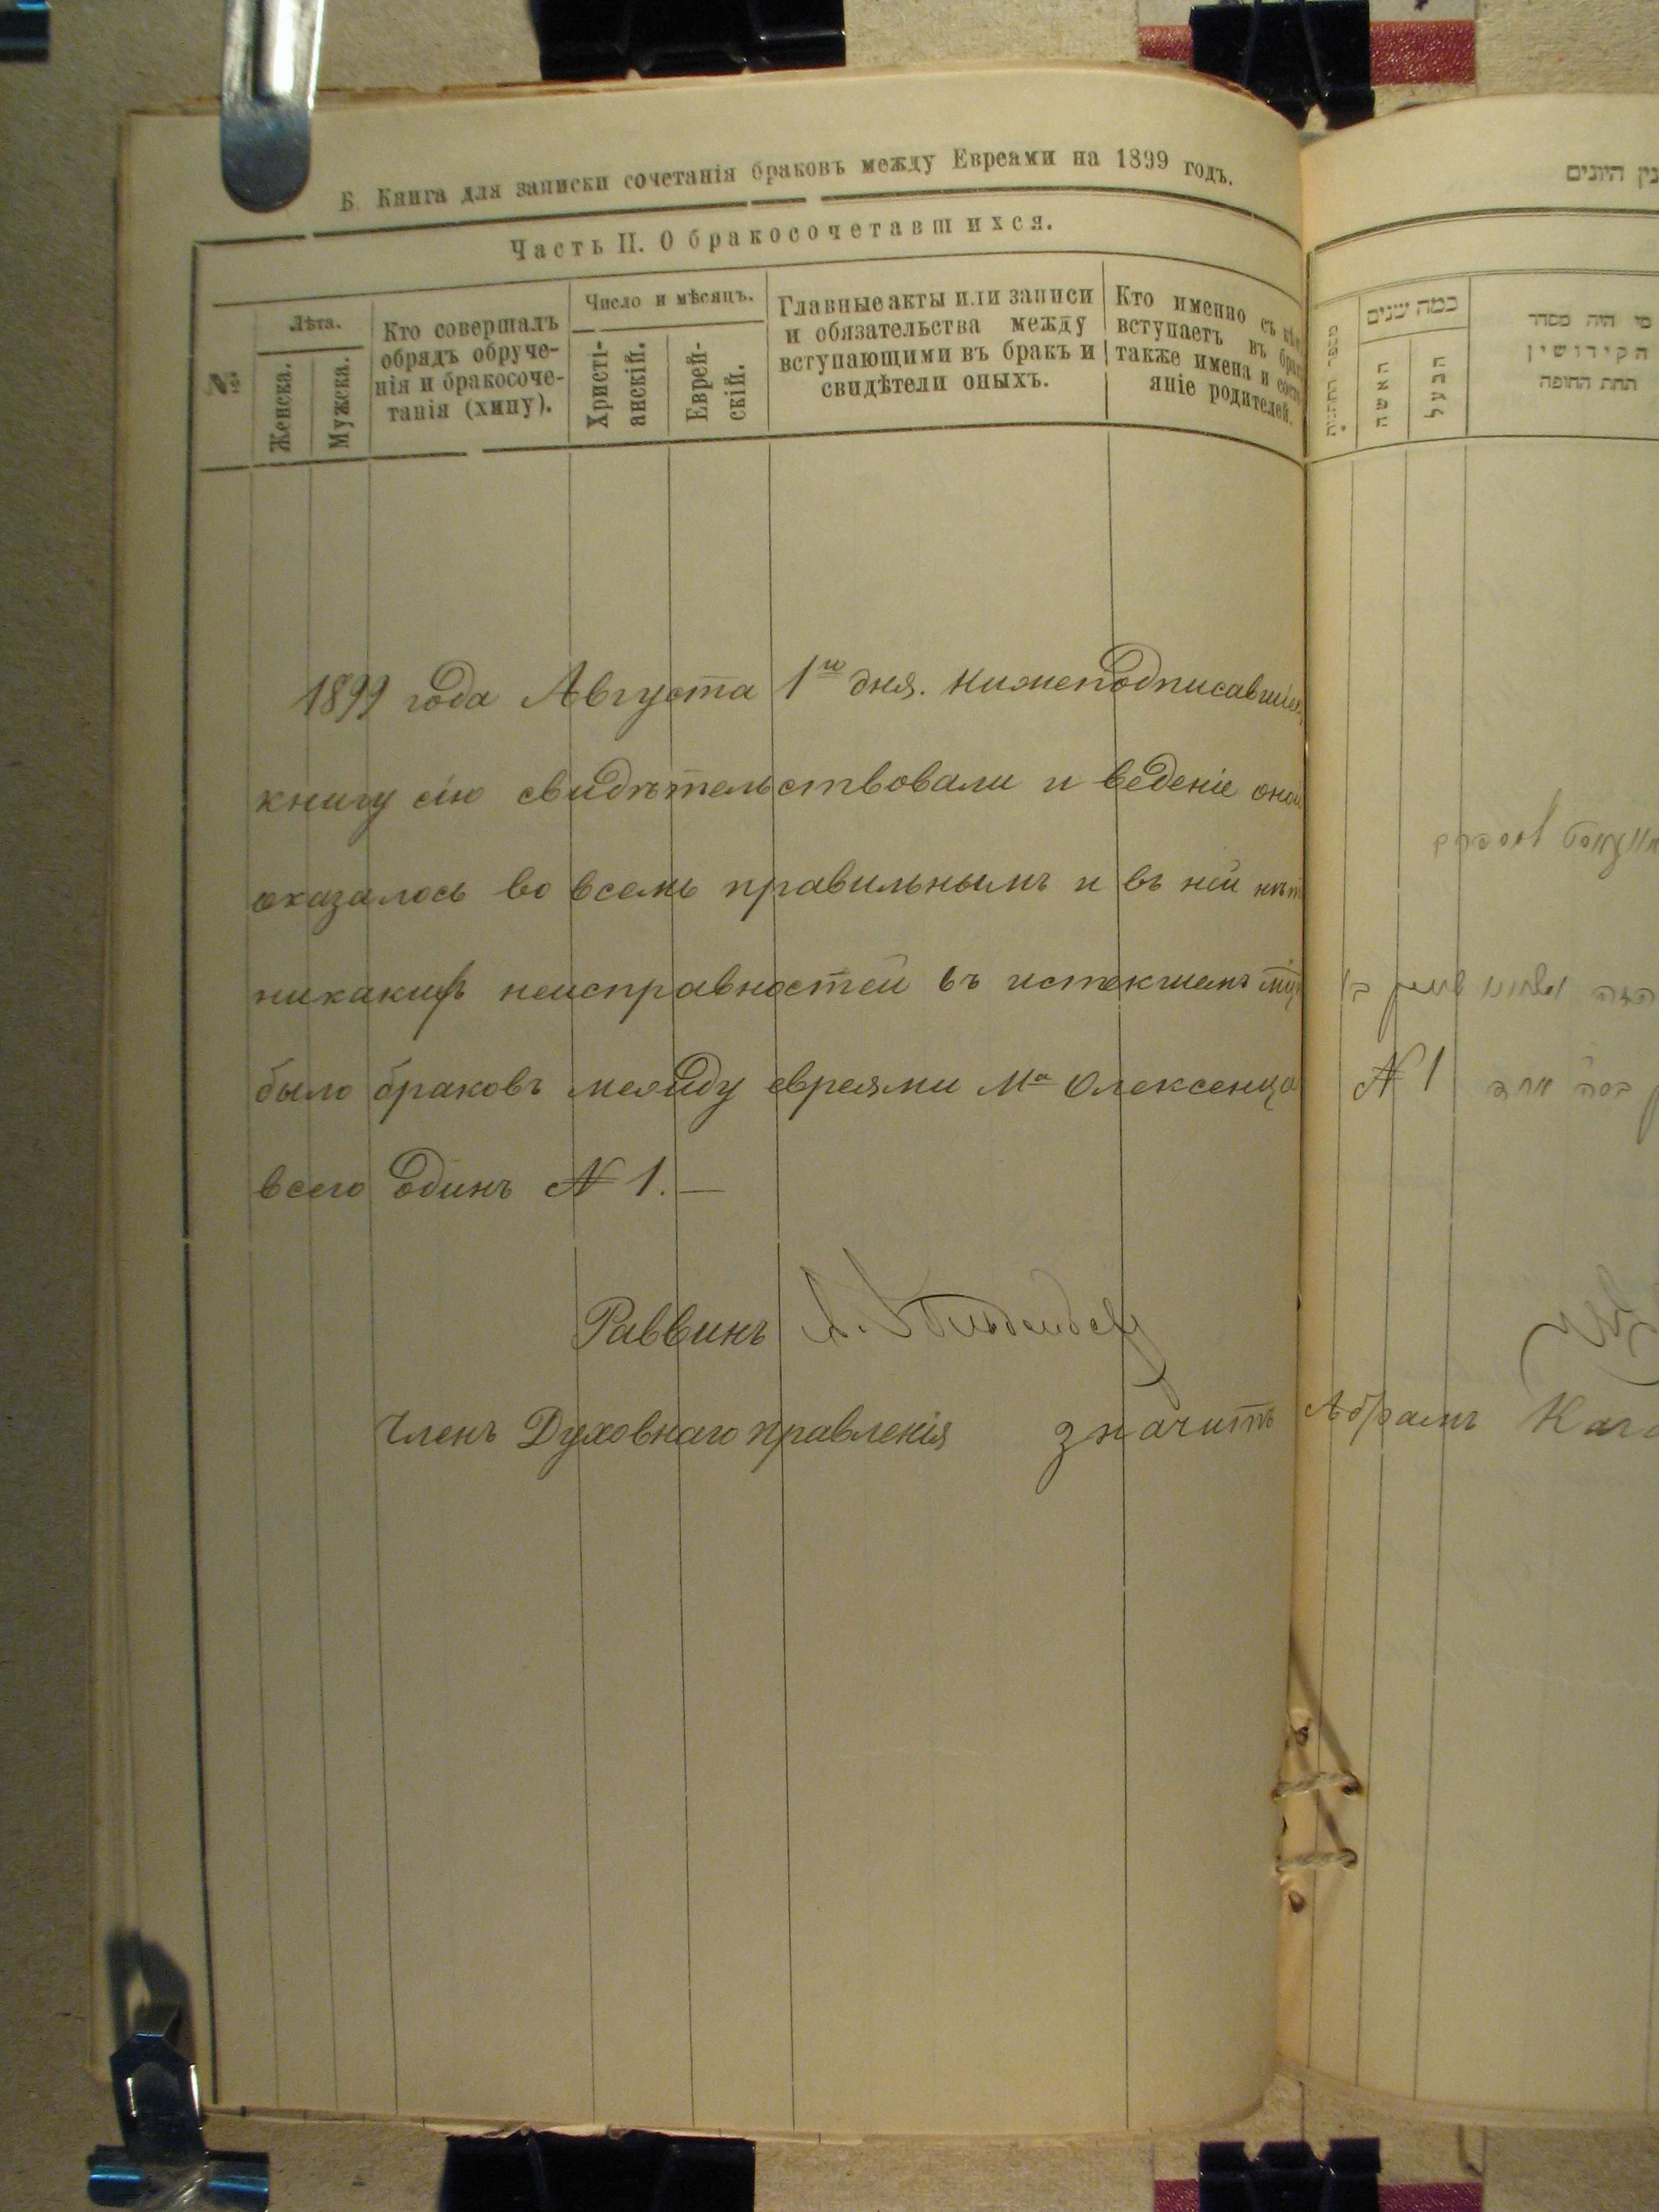 Б. Книга для записки сочетанія браковъ между Евреями на 1899 годъ.
Часть II. О бракосочетавшихся.
№
Лѣта.
Женска.
Мужска.
Кто совершалъ
обрядъ обруче-
нія и бракосоче-
танія (хипу).
Число и мѣсяцъ.
Христі-
анскій.
Еврей-
скій.
Главные акты или записи
и обязательства между
вступающими въ бракъ и
свидѣтели оныхъ.
Кто именно съ кѣмъ
вступаетъ въ бракъ
также имена и состо-
яніе родителей.
1899 года Августа 1го дня. Нижеподписавшіеся
книгу сію свидѣтельствовали и веденіе оной
оказалось во всемъ правильнымъ и въ ней нѣтъ
никакихъ неисправностей въ истекшемъ
было браковъ между евреями Мѣ Олексенца
всего одинъ N 1. —
Раввинъ
Членъ Духовнаго правленія значитъ Абрамъ
כמה שנים
האשה
הבעל
מי היה מסדר
הקידושין
תחת החופה
N 1